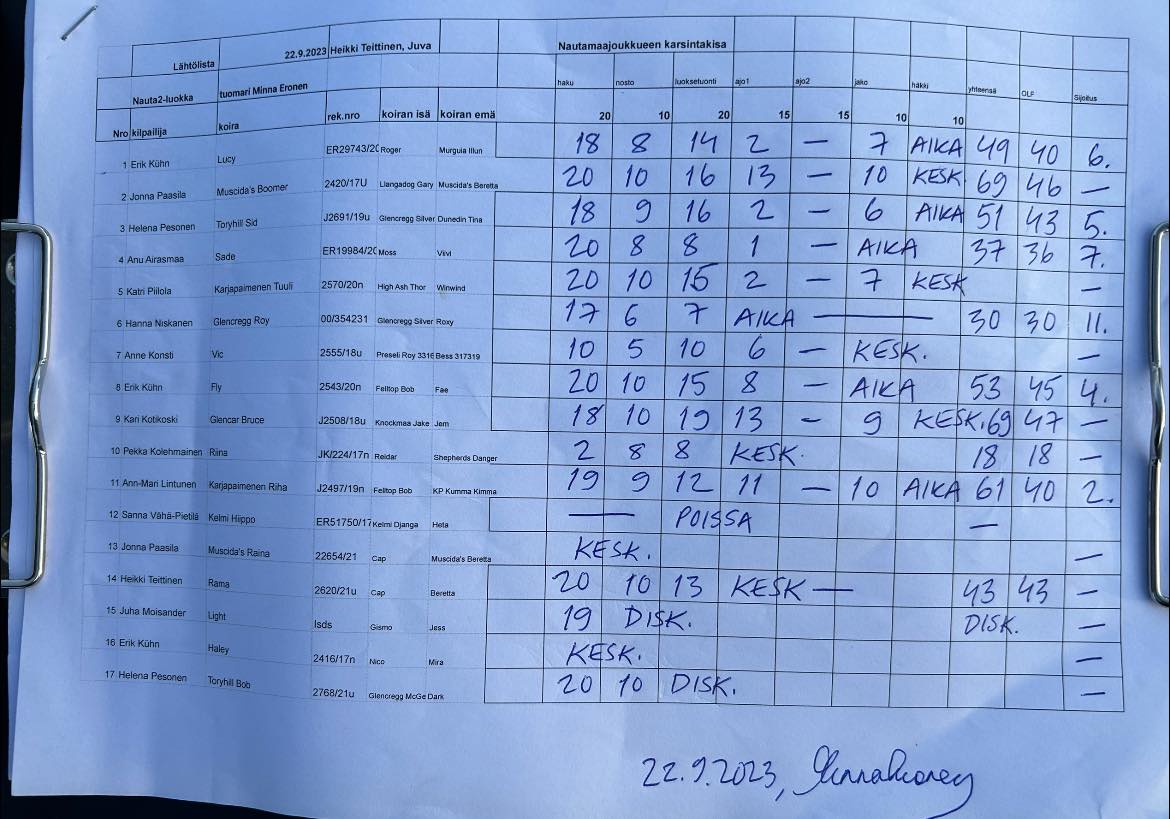 22.9.2023 Heikki Teittinen, Juva Nautamaajoukkueen karsintakisa
Lähtölista haku nosto luoksetuonti ajo1 ajo2 jako häkki yhteensä OLF Sijoitus
Nauta2-luokka tuomari Minna Eronen
Nro kilpailija koira rek.nro koiran isä koiran emä 20 10 20 15 15 10 10
1 Erik Kühn Lucy ER29743/20 Roger Murguia Illun 18 8 14 2 — 7 AIKA 49 40 6.
2 Jonna Paasila Muscida's Boomer 2420/17U Llangadog Gary Muscida's Beretta 20 10 16 13 — 10 KESK 69 46 —
3 Helena Pesonen Toryhill Sid J2691/19u Glencregg Silver Dunedin Tina 18 9 16 2 — 6 AIKA 51 43 5.
4 Anu Airasmaa Sade ER19984/20 Moss Viivi 20 8 8 1 — AIKA 37 36 7.
5 Katri Piilola Karjapaimenen Tuuli 2570/20n High Ash Thor Winwind 20 10 15 2 — 7 KESK —
6 Hanna Niskanen Glencregg Roy 00/354231 Glencregg Silver Roxy 17 6 7 AIKA — 30 30 11.
7 Anne Konsti Vic 2555/18u Preseli Roy 3316 Bess 317319 10 5 10 6 — KESK. —
8 Erik Kühn Fly 2543/20n Felltop Bob Fae 20 10 15 8 — AIKA 53 45 4.
9 Kari Kotikoski Glencar Bruce J2508/18u Knockmaa Jake Jem 18 10 19 13 — 9 KESK. 69 47 —
10 Pekka Kolehmainen Riina JK/224/17n Reidar Shepherds Danger 2 8 8 KESK. 18 18 —
11 Ann-Mari Lintunen Karjapaimenen Riha J2497/19n Felltop Bob KP Kumma Kimma 19 9 12 11 — 10 AIKA 61 40 2.
12 Sanna Vähä-Pietilä Kelmi Hiippo ER51750/17 Kelmi Django Heta — POISSA —
13 Jonna Paasila Muscida's Raina 22654/21 Cap Muscida's Beretta KESK. —
14 Heikki Teittinen Rama 2620/21u Cap Beretta 20 10 13 KESK — 43 43 —
15 Juha Moisander Light Isds Gismo Jess 19 DISK. DISK. —
16 Erik Kühn Haley 2416/17n Nico Mira KESK. —
17 Helena Pesonen Toryhill Bob 2768/21u Glencregg McGe Dark 20 10 DISK. —
22.9.2023,